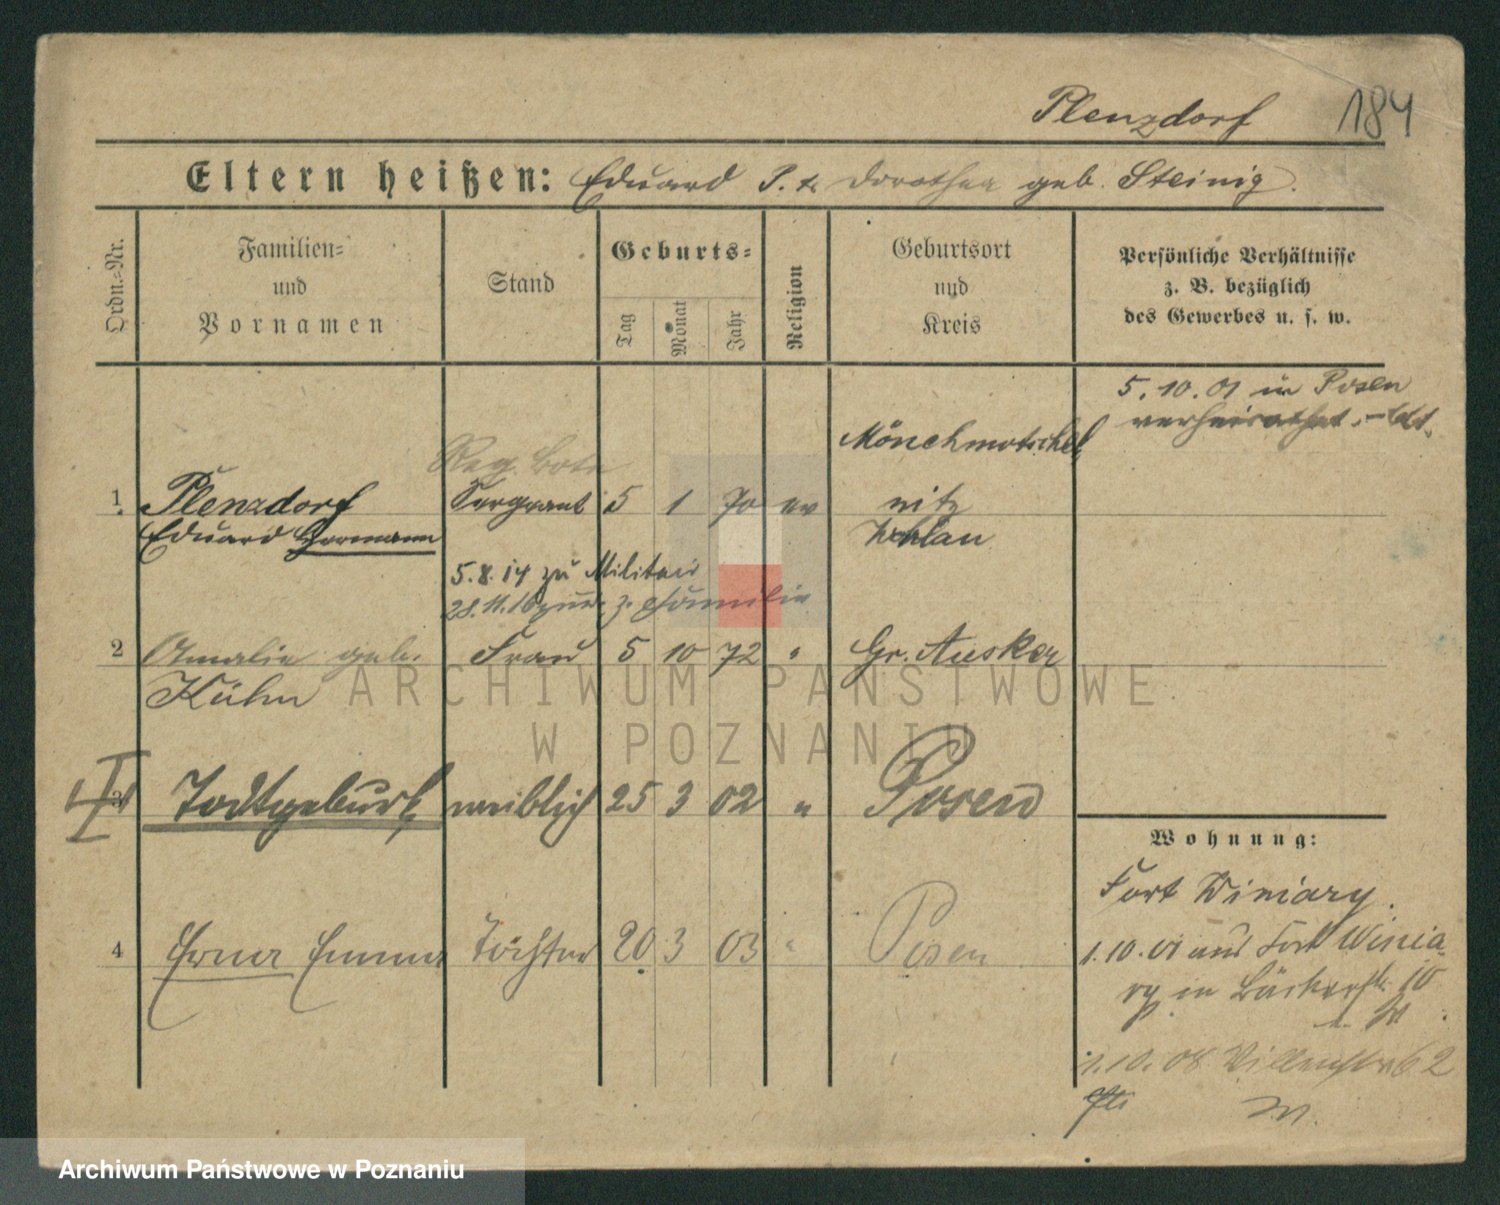 Plenzdorf 184
Eltern heißen: Eduard P. u. Dorothea geb. Steinig.
Ordn.=Nr.
Familien=
und
Vornamen
Stand
Geburts=
Tag
Monat
Jahr
Religion
Geburtsort
und
Kreis
Persönliche Verhältnisse
z. B. bezüglich
des Gewerbes u. s. w.
5. 10. 01 in Posen
verheirathet.
Mönchmotschel
Reg. Bote
1. Plenzdorf Sergeant 5 1 70 ev nitz
Eduard Hermann Wohlau
5.8.14 zu Militär
28.11.16 z. Familie
2 Amalie geb. Frau 5 10 72 " Gr. Ausker
Kühn
3 Todtgeburt weiblich 25 3 02 " Posen
Wohnung:
Fort Winiary.
4 Erna Emma Tochter 20 3 03 " Posen
1. 10. 01 aus Fort Winia
ry in Bäckerstr. 10
1. 10. 08 62
ARCHIWUM PAŃSTWOWE
W POZNANIU
Archiwum Państwowe w Poznaniu